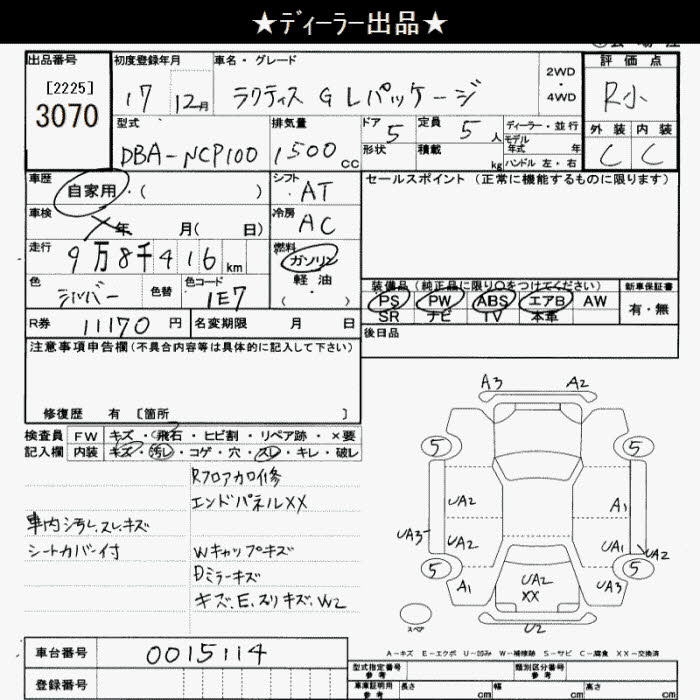 ★ディーラー出品★
出品番号
[2225]
3070
初度登録年月
17 12月
車名・グレード
ラクティス G Lパッケージ
2WD
・
4WD
評価点
R小
外装 内装
C C
型式
DBA-NCP100
排気量
1500cc
ドア 5
形状
定員 5人
積載 kg
ディーラー・並行
モデル年式 年
ハンドル 左・右
車歴
自家用・( )
シフト
AT
セールスポイント (正常に機能するものに限ります)
車検
年 月( 日)
冷房
AC
走行
9万8千416km
燃料
ガソリン
軽油
( ・ )
色
シルバー
色替
色コード
1E7
装備品(純正品に限り○をつけてください)
PS PW ABS エアB AW
SR ナビ TV 本革
新車保証書
有・無
R券 11170円
名変期限 月 日
後日品
注意事項申告欄(不具合内容等は具体的に記入して下さい)
修復歴 有 [箇所 ]
検査員 FW キズ・飛石・ヒビ割・リペア跡・×要
記入欄 内装 キズ・汚レ・コゲ・穴・スレ・キレ・破レ
Rフロアカロイ修
エンドパネルXX
車内汚レ、スレ、キズ
シートカバー付
Wキャップキズ
Dミラーキズ
キズ、E、スリキズ、W2
A3 A2
5 5
UA2 A1
UA3 UA2 UA1 UA2
5 5
A1 UA2 XX UA3
スペア
U2
A-キズ E-エクボ U-凹み W-補修跡 S-サビ C-腐食 XX-交換済
車台番号 0015114
登録番号
型式指定番号
参考
類別区分番号
参考
車庫証明用
参考
長さ cm 幅 cm 高さ cm